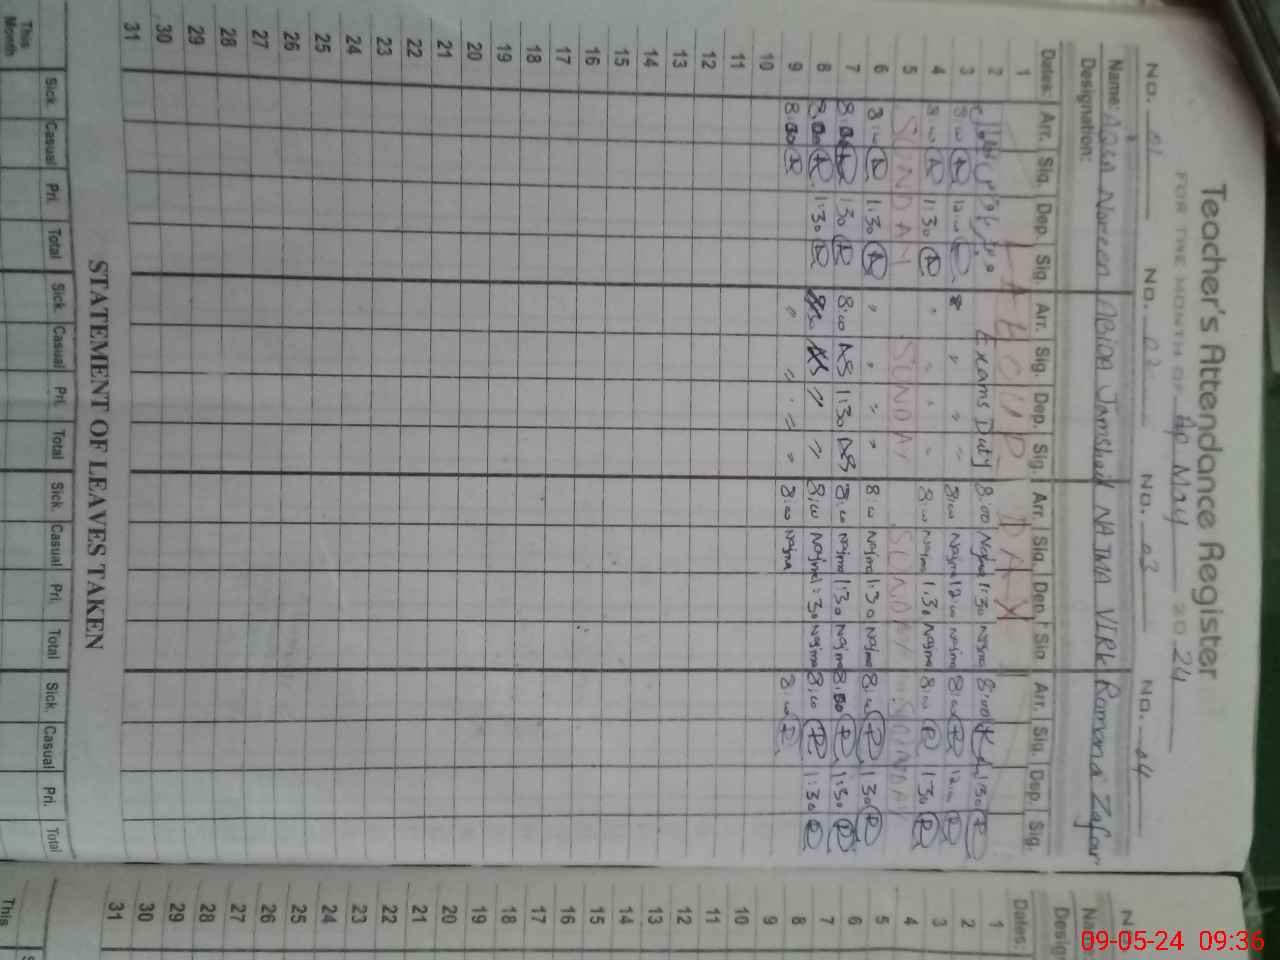 Teacher's Attendance Register
FOR THE MONTH OF May 2024
No. 01 No. 02 No. 03 No. 04
Name: Noreen ABIDA Jamshaid NAJMA VIRK Romana Zafar
Designation:
Dates: Arr. Sig. Dep. Sig. Arr. Sig. Dep. Sig. Arr. Sig. Dep. Sig. Arr. Sig. Dep. Sig.
1 LABOUR DAY
2 Exams Duty 8:00 Najma 1:30 Najma 8:00 1:30
3 8:00 12:00 " " " 8:00 Najma 12:00 Najma 8:00 12:00
4 8:00 1:30 " " " " 8:00 Najma 1:30 Najma 8:00 1:30
5 SUNDAY SUNDAY SUNDAY SUNDAY
6 8:00 1:30 " " " " 8:00 Najma 1:30 Najma 8:00 1:30
7 8:00 1:30 8:00 AS 1:30 AS 8:00 Najma 1:30 Najma 8:00 1:30
8 8:00 1:30 " " 8:00 Najma 1:30 Najma 8:00 1:30
9 8:00 " " " " 8:00 Najma 8:00
10
11
12
13
14
15
16
17
18
19
20
21
22
23
24
25
26
27
28
29
30
31
STATEMENT OF LEAVES TAKEN
Sick Casual Pri. Total Sick. Casual Pri. Total Sick. Casual Pri. Total Sick. Casual Pri. Total
This Month
Dates:
1
2
3
4
5
6
7
8
9
10
11
12
13
14
15
16
17
18
19
20
21
22
23
24
25
26
27
28
29
30
31
This
09-05-24 09:36